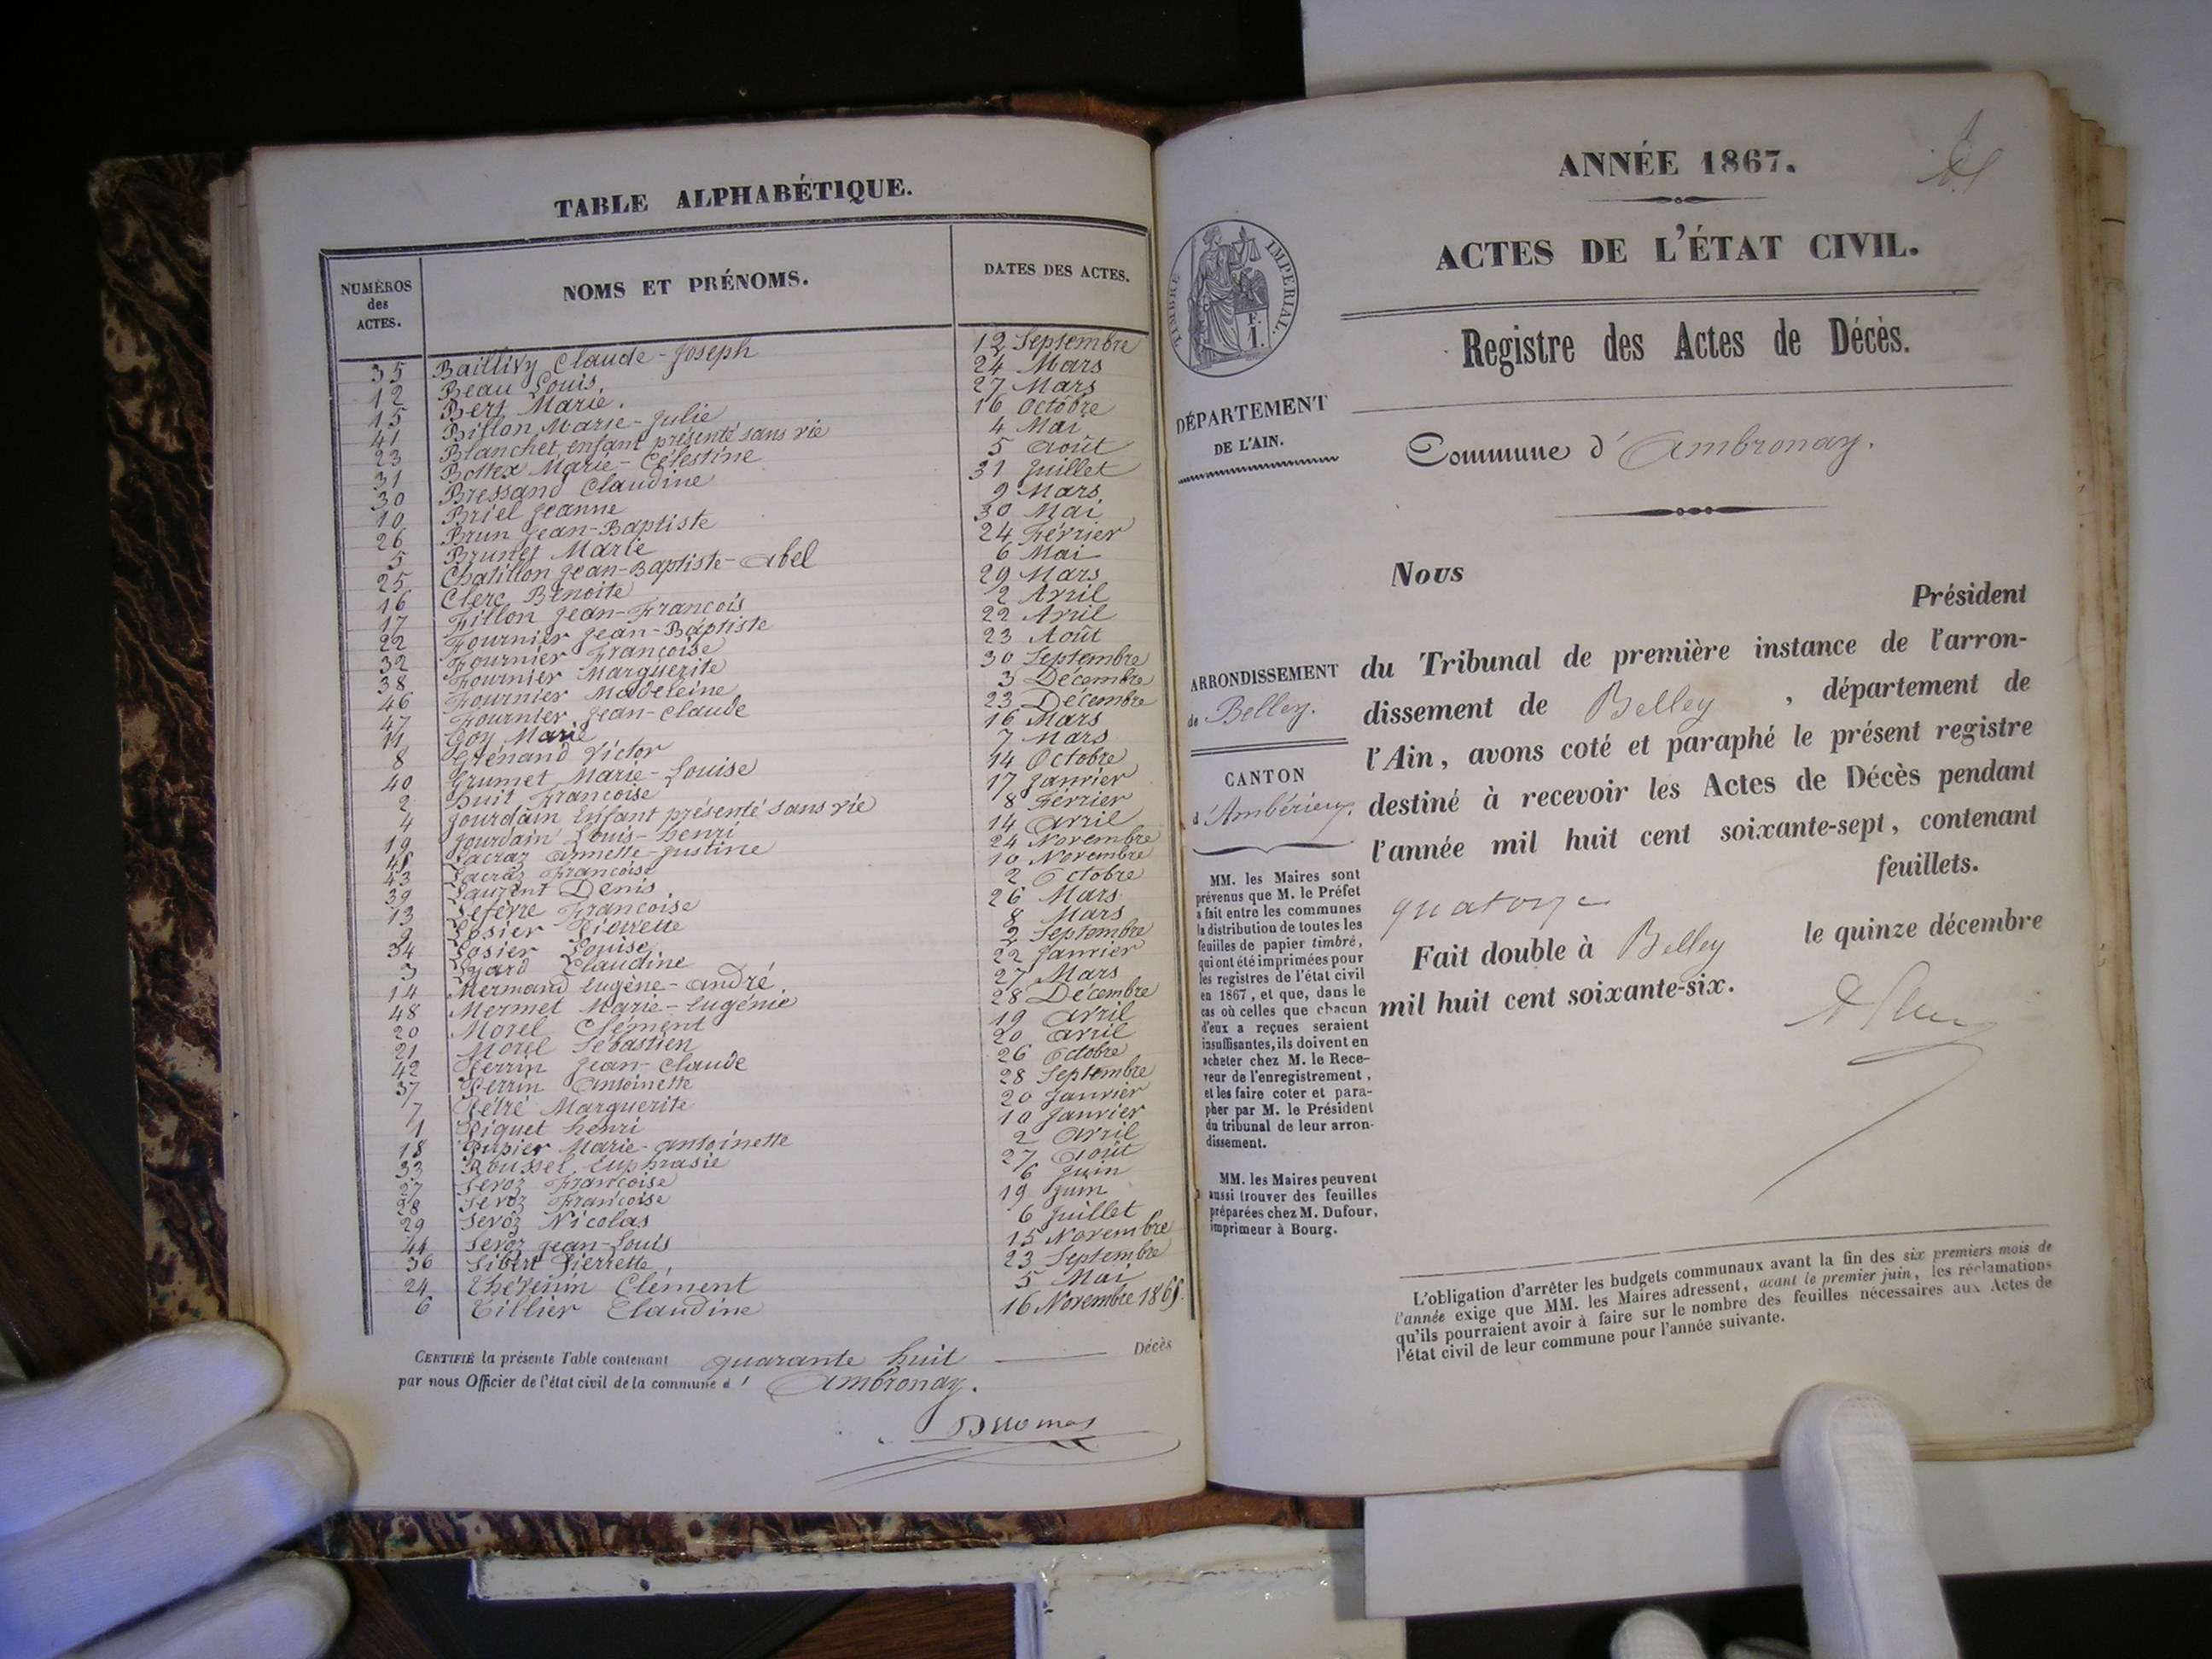 TABLE ALPHABÉTIQUE.
NUMÉROS des ACTES. NOMS ET PRÉNOMS. DATES DES ACTES.
35 Baillivy Claude-Joseph 12 Septembre
12 Beau Louis. 24 Mars
15 Bert Marie. 27 Mars
41 Billon Marie-Julie 16 Octobre
23 Blanchet, enfant présenté sans vie 4 Mai
31 Bottex Marie-Célestine 5 Août
30 Bressand Claudine 31 Juillet
10 Briel Jeanne 9 Mars
26 Brun Jean-Baptiste 30 Mai
5 Brunet Marie 24 Février
25 Chatillon Jean-Baptiste-Abel 6 Mai
16 Clerc Benoite 29 Mars
17 Fillon Jean-François 2 Avril
22 Fournier Jean-Baptiste 22 Avril
32 Fournier Françoise 23 Août
38 Fournier Marguerite 30 Septembre
46 Fournier Madeleine 3 Décembre
47 Fournier Jean-Claude 23 Décembre
11 Goy Marie 16 Mars
8 Grénand Victor 7 Mars
40 Grumet Marie-Louise 14 Octobre
2 huit Françoise 17 Janvier
4 Jourdain Enfant présenté sans vie 8 Février
19 Jourdain Louis-henri 14 Avril
Lacraz Annette-Justine 24 Novembre
43 Lacraz Françoise 10 Novembre
39 Laurent Denis 2 Octobre
13 Lefèvre Françoise 26 Mars
9 Losier Pierrette 8 Mars
34 Losier Louise 2 Septembre
3 Lyard Claudine 22 Janvier
14 Mermand Eugène-André. 27 Mars
48 Mermet Marie-Eugénie 28 Décembre
20 Morel Clément 19 Avril
21 Morel Sébastien 20 Avril
42 Perrin Jean-Claude 26 Octobre
37 Perrin Antoinette 28 Septembre
7 Pétré Marguerite 20 Janvier
1 Piquet henri 10 Janvier
18 Pupier Marie-Antoinette 2 Avril
33 Roussel Euphrasie 27 Août
27 Servoz Françoise 6 Juin
28 Servoz Françoise 19 Juin
29 Servoz Nicolas 6 Juillet
44 Servoz Jean-Louis 15 Novembre
36 Sibert Pierrette 23 Septembre
24 Thévenin Clément 5 Mai
6 Tillier Claudine 16 Novembre
CERTIFIÉ la présente Table contenant quarante huit Décès
par nous Officier de l'état civil de la commune d' Ambronay.
ANNÉE 1867.
ACTES DE L'ÉTAT CIVIL.
TIMBRE IMPÉRIAL.
F.
1.
Registre des Actes de Décès.
DÉPARTEMENT
DE L'AIN.
Commune d'Ambronay.
Nous
Président
du Tribunal de première instance de l'arron-
dissement de Belley, département de
l'Ain, avons coté et paraphé le présent registre
destiné à recevoir les Actes de Décès pendant
l'année mil huit cent soixante-sept, contenant
quatorze feuillets.
Fait double à Belley le quinze décembre
mil huit cent soixante-six.
ARRONDISSEMENT
de Belley.
CANTON
d'Ambérieux.
MM. les Maires sont
prévenus que M. le Préfet
a fait entre les communes
la distribution de toutes les
feuilles de papier timbré,
qui ont été imprimées pour
les registres de l'état civil
en 1867, et que, dans le
cas où celles que chacun
d'eux a reçues seraient
insuffisantes, ils doivent en
acheter chez M. le Rece-
veur de l'enregistrement,
et les faire coter et para-
pher par M. le Président
du tribunal de leur arron-
dissement.
MM. les Maires peuvent
aussi trouver des feuilles
préparées chez M. Dufour,
imprimeur à Bourg.
L'obligation d'arrêter les budgets communaux avant la fin des six premiers mois de
l'année exige que MM. les Maires adressent, avant le premier juin, les réclamations
qu'ils pourraient avoir à faire sur le nombre des feuilles nécessaires aux Actes de
l'état civil de leur commune pour l'année suivante.